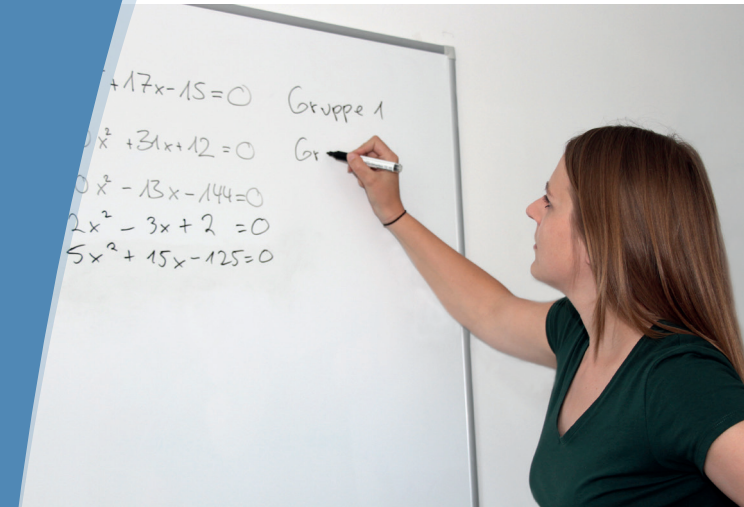 +17x-15=0 Gruppe 1
x² +31x+12=0 Gr
x² -13x-144=0
2x² -3x+2 =0
5x² +15x-125=0